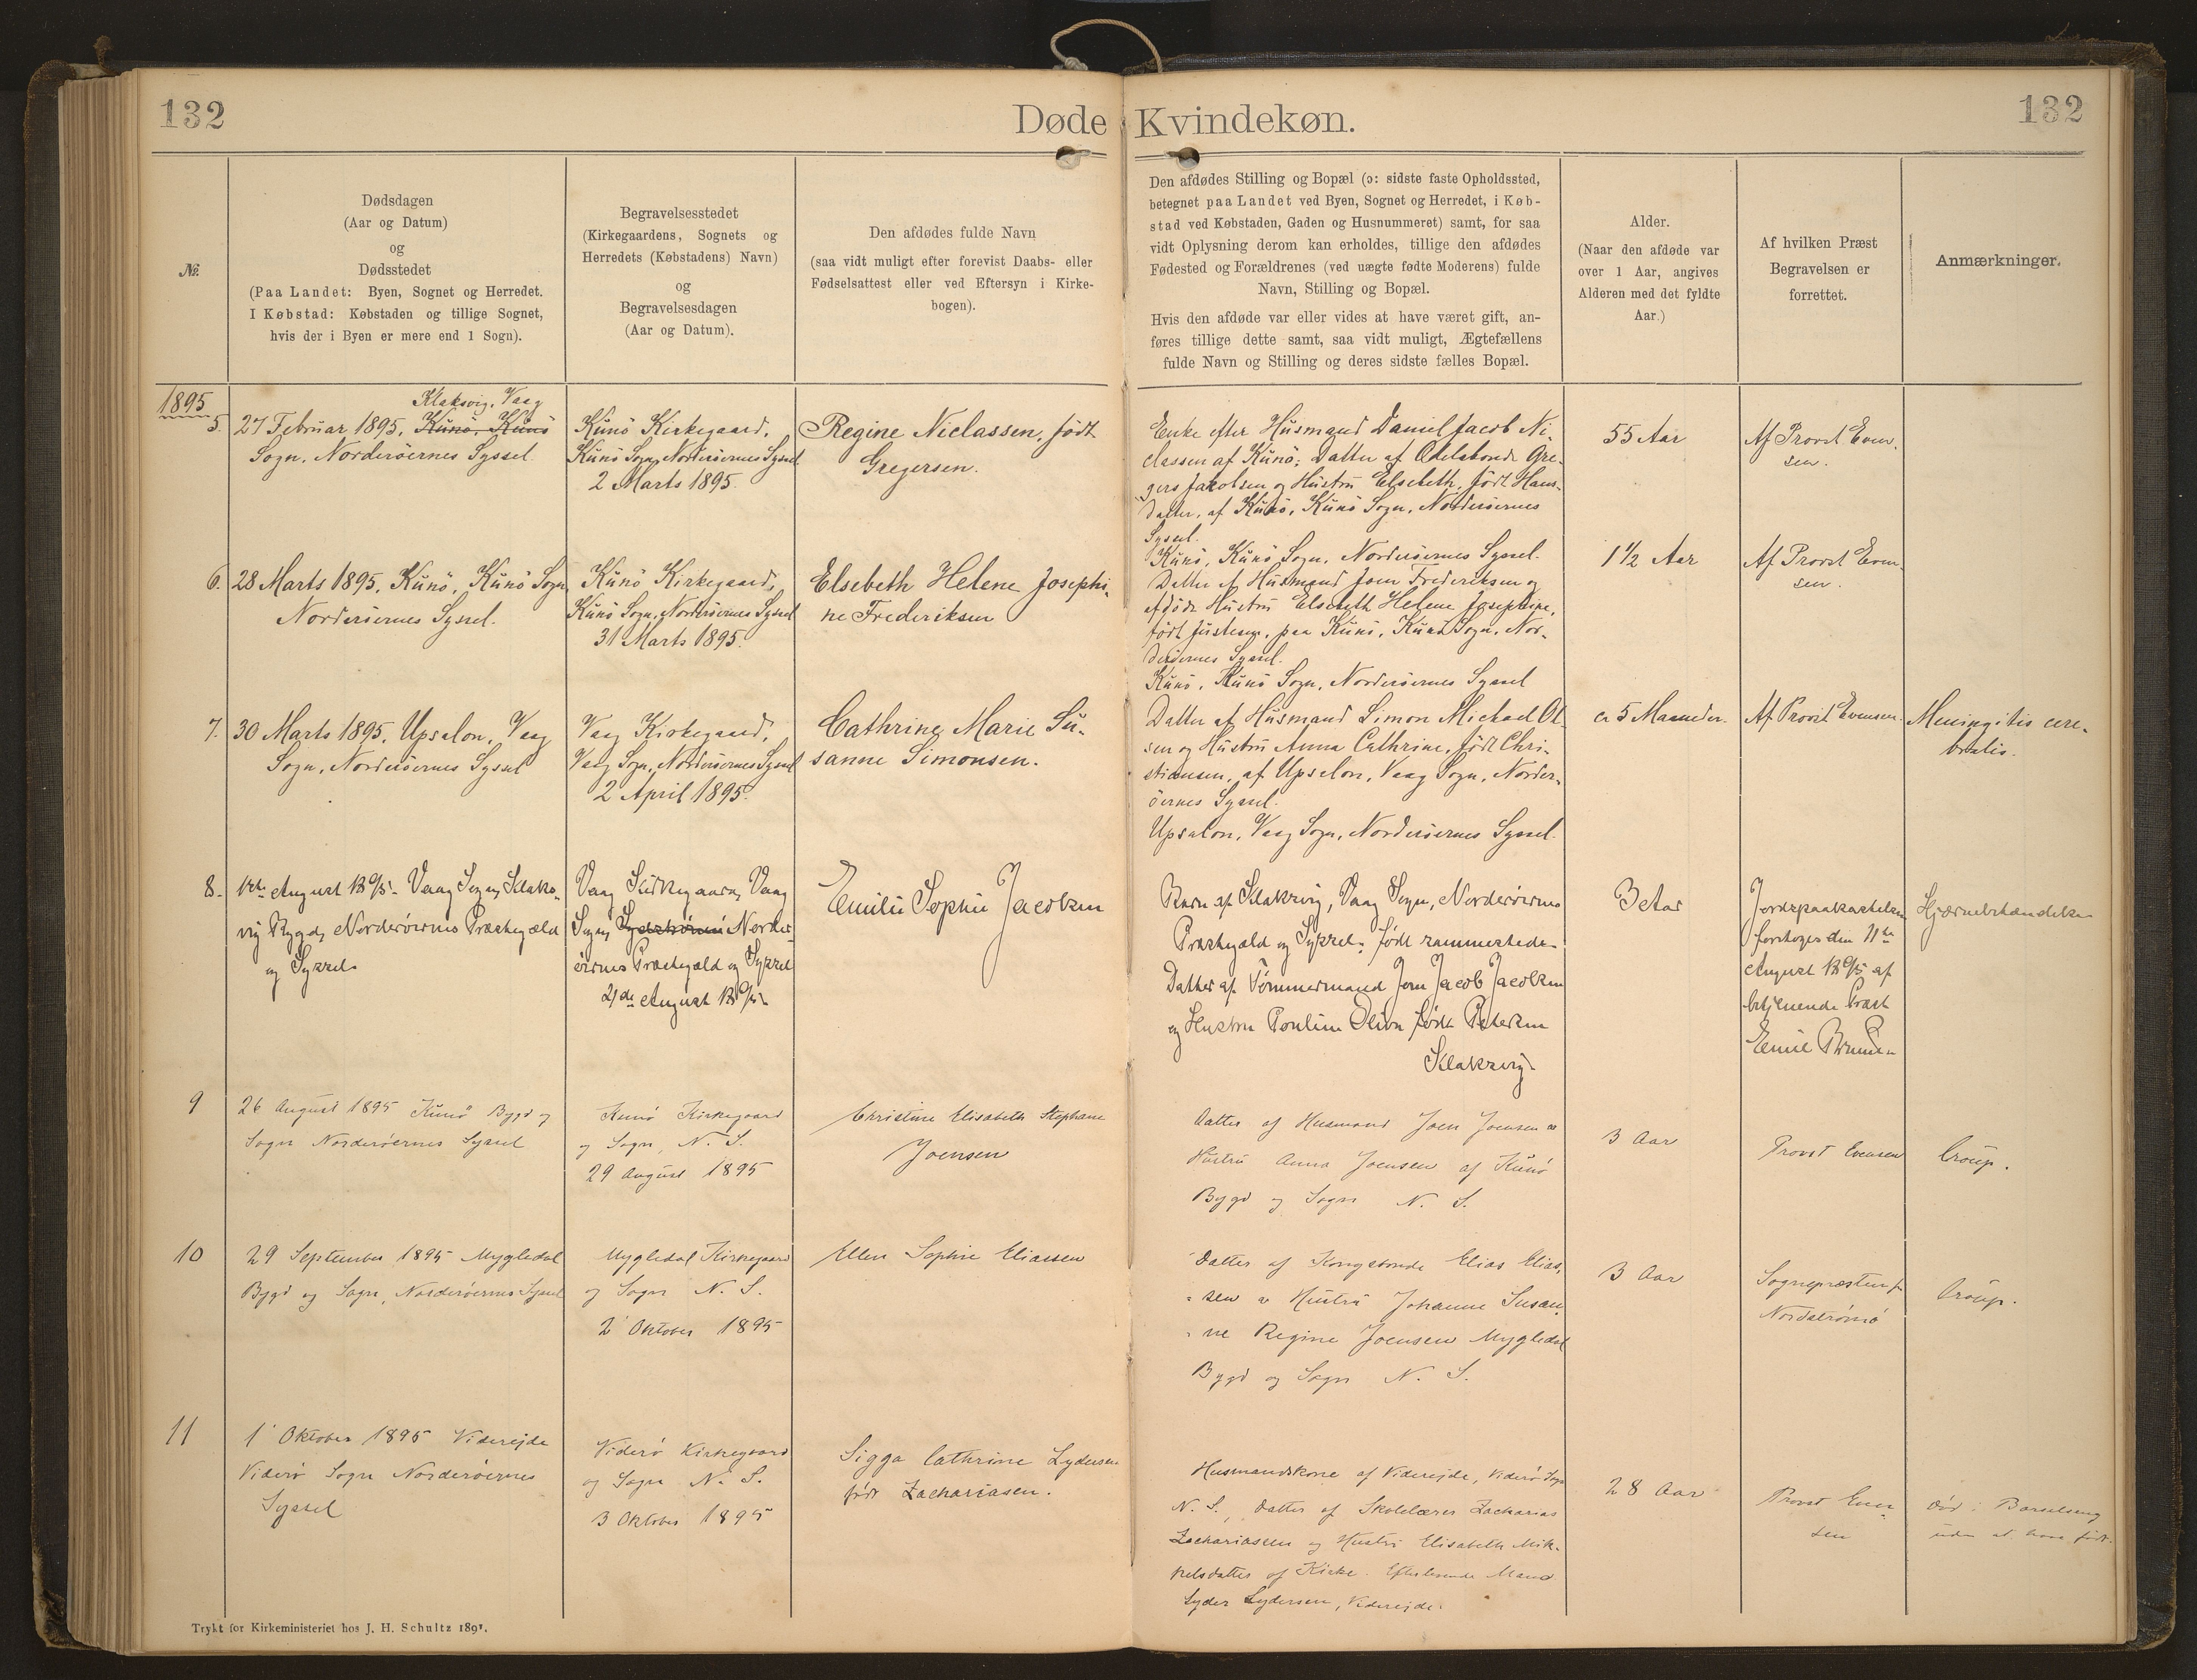 132
Døde
Kvindekøn.
132
№
Dødsdagen
(Aar og Datum)
og
Dødsstedet
(Paa Landet: Byen, Sognet og Herredet.
I Købstad: Købstaden og tillige Sognet,
hvis der i Byen er mere end 1 Sogn).
Begravelsesstedet
(Kirkegaardens, Sognets og
Herredets (Købstadens) Navn)
og
Begravelsesdagen
(Aar og Datum).
Den afdødes fulde Navn
(saa vidt muligt efter forevist Daabs- eller
Fødselsattest eller ved Eftersyn i Kirke-
bogen).
Den afdødes Stilling og Bopæl (ɔ: sidste faste Opholdssted,
betegnet paa Landet ved Byen, Sognet og Herredet, i Køb-
stad ved Købstaden, Gaden og Husnummeret) samt, for saa
vidt Oplysning derom kan erholdes, tillige den afdødes
Fødested og Forældrenes (ved uægte fødte Moderens) fulde
Navn, Stilling og Bopæl.
Hvis den afdøde var eller vides at have været gift, an-
føres tillige dette samt, saa vidt muligt, Ægtefællens
fulde Navn og Stilling og deres sidste fælles Bopæl.
Alder.
(Naar den afdøde var
over 1 Aar, angives
Alderen med det fyldte
Aar.)
Af hvilken Præst
Begravelsen er
forrettet.
Anmærkninger.
1895
5.
Klaksvig, Vaag
27 Februar 1895, Kunö, Kunö
Sogn, Norderöernes Syssel.
Kunö Kirkegaard,
Kunö Sogn, Norderöernes Syssel
2 Marts 1895.
Regine Niclassen, født
Gregersen.
Enke efter Husmand Daniel Jacob Ni-
classen af Kunö; Datter af Odelsbonde Gre-
gers Jacobsen og Hustru Elsebeth, født Hans-
datter, af Kunö, Kunö Sogn, Norderöernes
Syssel.
55 Aar
Af Provst Even-
sen.
6.
28 Marts 1895, Kunö, Kunö Sogn,
Norderöernes Syssel.
Kunö Kirkegaard,
Kunö Sogn, Norderöernes Syssel
31 Marts 1895.
Elsebeth Helene Josephi-
ne Frederiksen
Kunö, Kunö Sogn, Norderöernes Syssel.
Datter af Husmand Joen Frederiksen og
afdöde Hustru Elsebeth Helene Josephine,
født Justesen, paa Kunö, Kunö Sogn, Nor-
deröernes Syssel.
Kunö, Kunö Sogn, Norderöernes Syssel
1 1/2 Aar
Af Provst Even-
sen.
7.
30 Marts 1895, Upsalon, Vaag
Sogn, Norderöernes Syssel
Vaag Kirkegaard,
Vaag Sogn, Norderöernes Syssel
2 April 1895.
Cathrine Marie Su-
sanne Simonsen.
Datter af Husmand Simon Michael Ol-
sen og Hustru Anna Cathrine, født Chri-
stiansen, af Upsalon, Vaag Sogn, Norder-
öernes Syssel.
Upsalon, Vaag Sogn, Norderöernes Syssel.
ca 5 Maaneder.
Af Provst Evensen.
Meningitis cere-
bralis.
8.
August 1895. Vaag Sogn, Klaks-
vig Bygd, Norderöernes Præstegæld
og Syssel.
Vaag Kirkegaard, Vaag
Sogn, Norder-
öernes Præstegæld og Syssel
August 1895.
Emilie Sophie Jacobsen
Barn af Klaksvig, Vaag Sogn, Norderöernes
Præstegæld og Syssel. født sammesteds.
Datter af Tømmermand Joen Jacob Jacobsen
og Hustru Pouline Oliva født Petersen
Klaksvig.
3 Aar
Jordspaakastelsen
foretoges den 11te
August 1895 af
betjenende Præst
Emil
Hjernebetændelse
9
26 August 1895 Kunö Bygd og
Sogn Norderöernes Syssel
Kunö Kirkegaard
og Sogn, N. S.
29 August 1895
Christine Elisabeth Stephane
Joensen
Datter af Husmand Joen Joensen &
Hustru Anna Joensen af Kunö
Bygd og Sogn N. S.
3 Aar
Provst Evensen
Croup.
10
29 September 1895 Mygledal
Bygd og Sogn, Norderöernes Syssel
Mygledal Kirkegaard
og Sogn N. S.
2 Oktober 1895
Ellen Sophie Eliassen
Datter af Kongsbonde Elias Elias-
sen & Hustru Johanne Susan-
ne Regine Joensen Mygledal
Bygd og Sogn N. S.
3 Aar
Sognepræsten f.
Nordströmö
Croup.
11
1 Oktober 1895 Videreide
Viderö Sogn Norderöernes
Syssel
Viderö Kirkegaard
og Sogn N. S.
3 Oktober 1895
Sigga Cathrine Lydersen
født Zachariasen.
Husmandskone af Videreide, Viderö Sogn
N. S., Datter af Skolelærer Zacharias
Zachariassen og Hustru Elisabeth Mik-
kelsdatter af Kirke. Efterlevende Mand
Lyder Lydersen, Videreide.
28 Aar
Provst Even-
sen
död i Barselseng
uden at have født.
Trykt for Kirkeministeriet hos J. H. Schultz 1891.